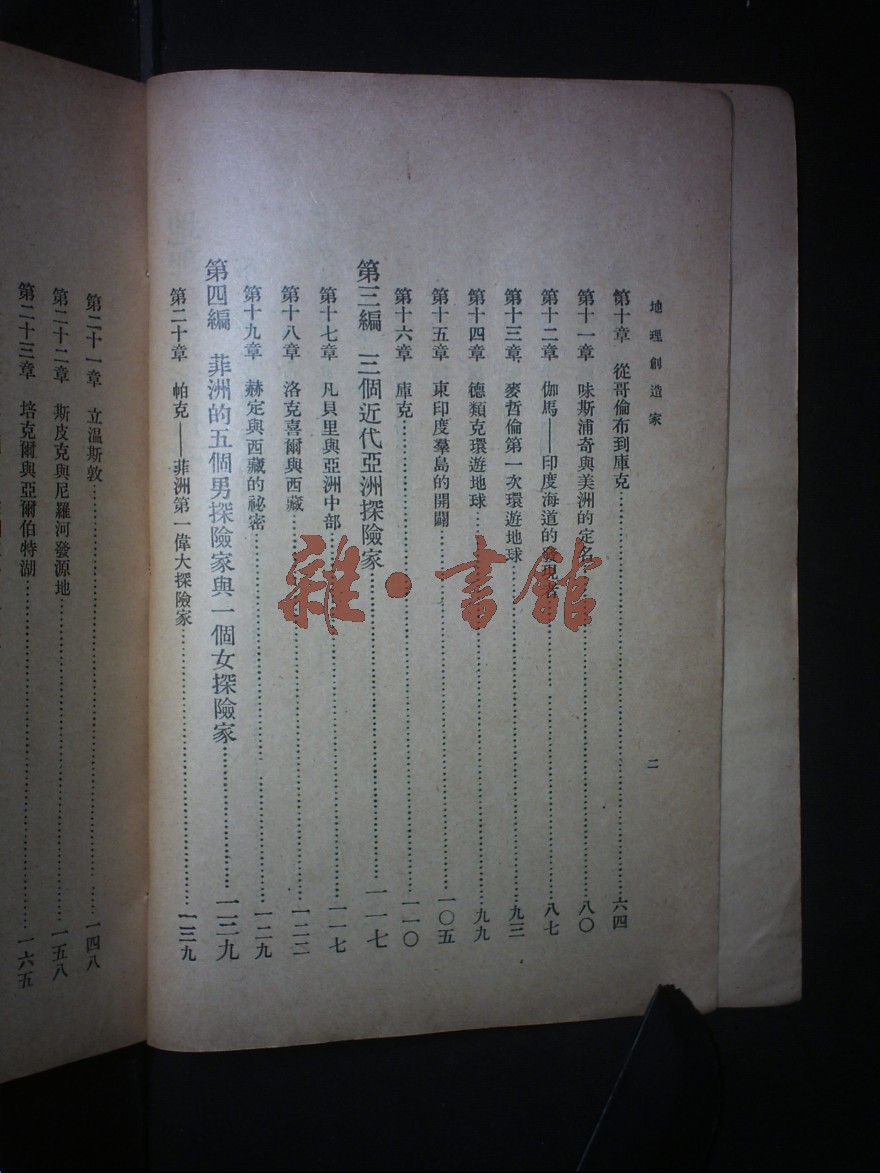 地理創造家
二
第十章　從哥倫布到庫克……六四
第十一章　味斯浦奇與美洲的定名……八〇
第十二章　伽馬——印度海道的發現者……八七
第十三章　麥哲倫第一次環遊地球……九三
第十四章　德類克環遊地球……九九
第十五章　東印度羣島的開闢……一〇五
第十六章　庫克……一一〇
第三編　三個近代亞洲探險家……一一七
第十七章　凡貝里與亞洲中部……一一七
第十八章　洛克喜爾與西藏……一二二
第十九章　赫定與西藏的祕密……一二九
第四編　菲洲的五個男探險家與一個女探險家……一三九
第二十章　帕克——菲洲第一偉大探險家……一三九
第二十一章　立溫斯敦……一四八
第二十二章　斯皮克與尼羅河發源地……一五八
第二十三章　培克爾與亞爾伯特湖……一六五
雜·書館